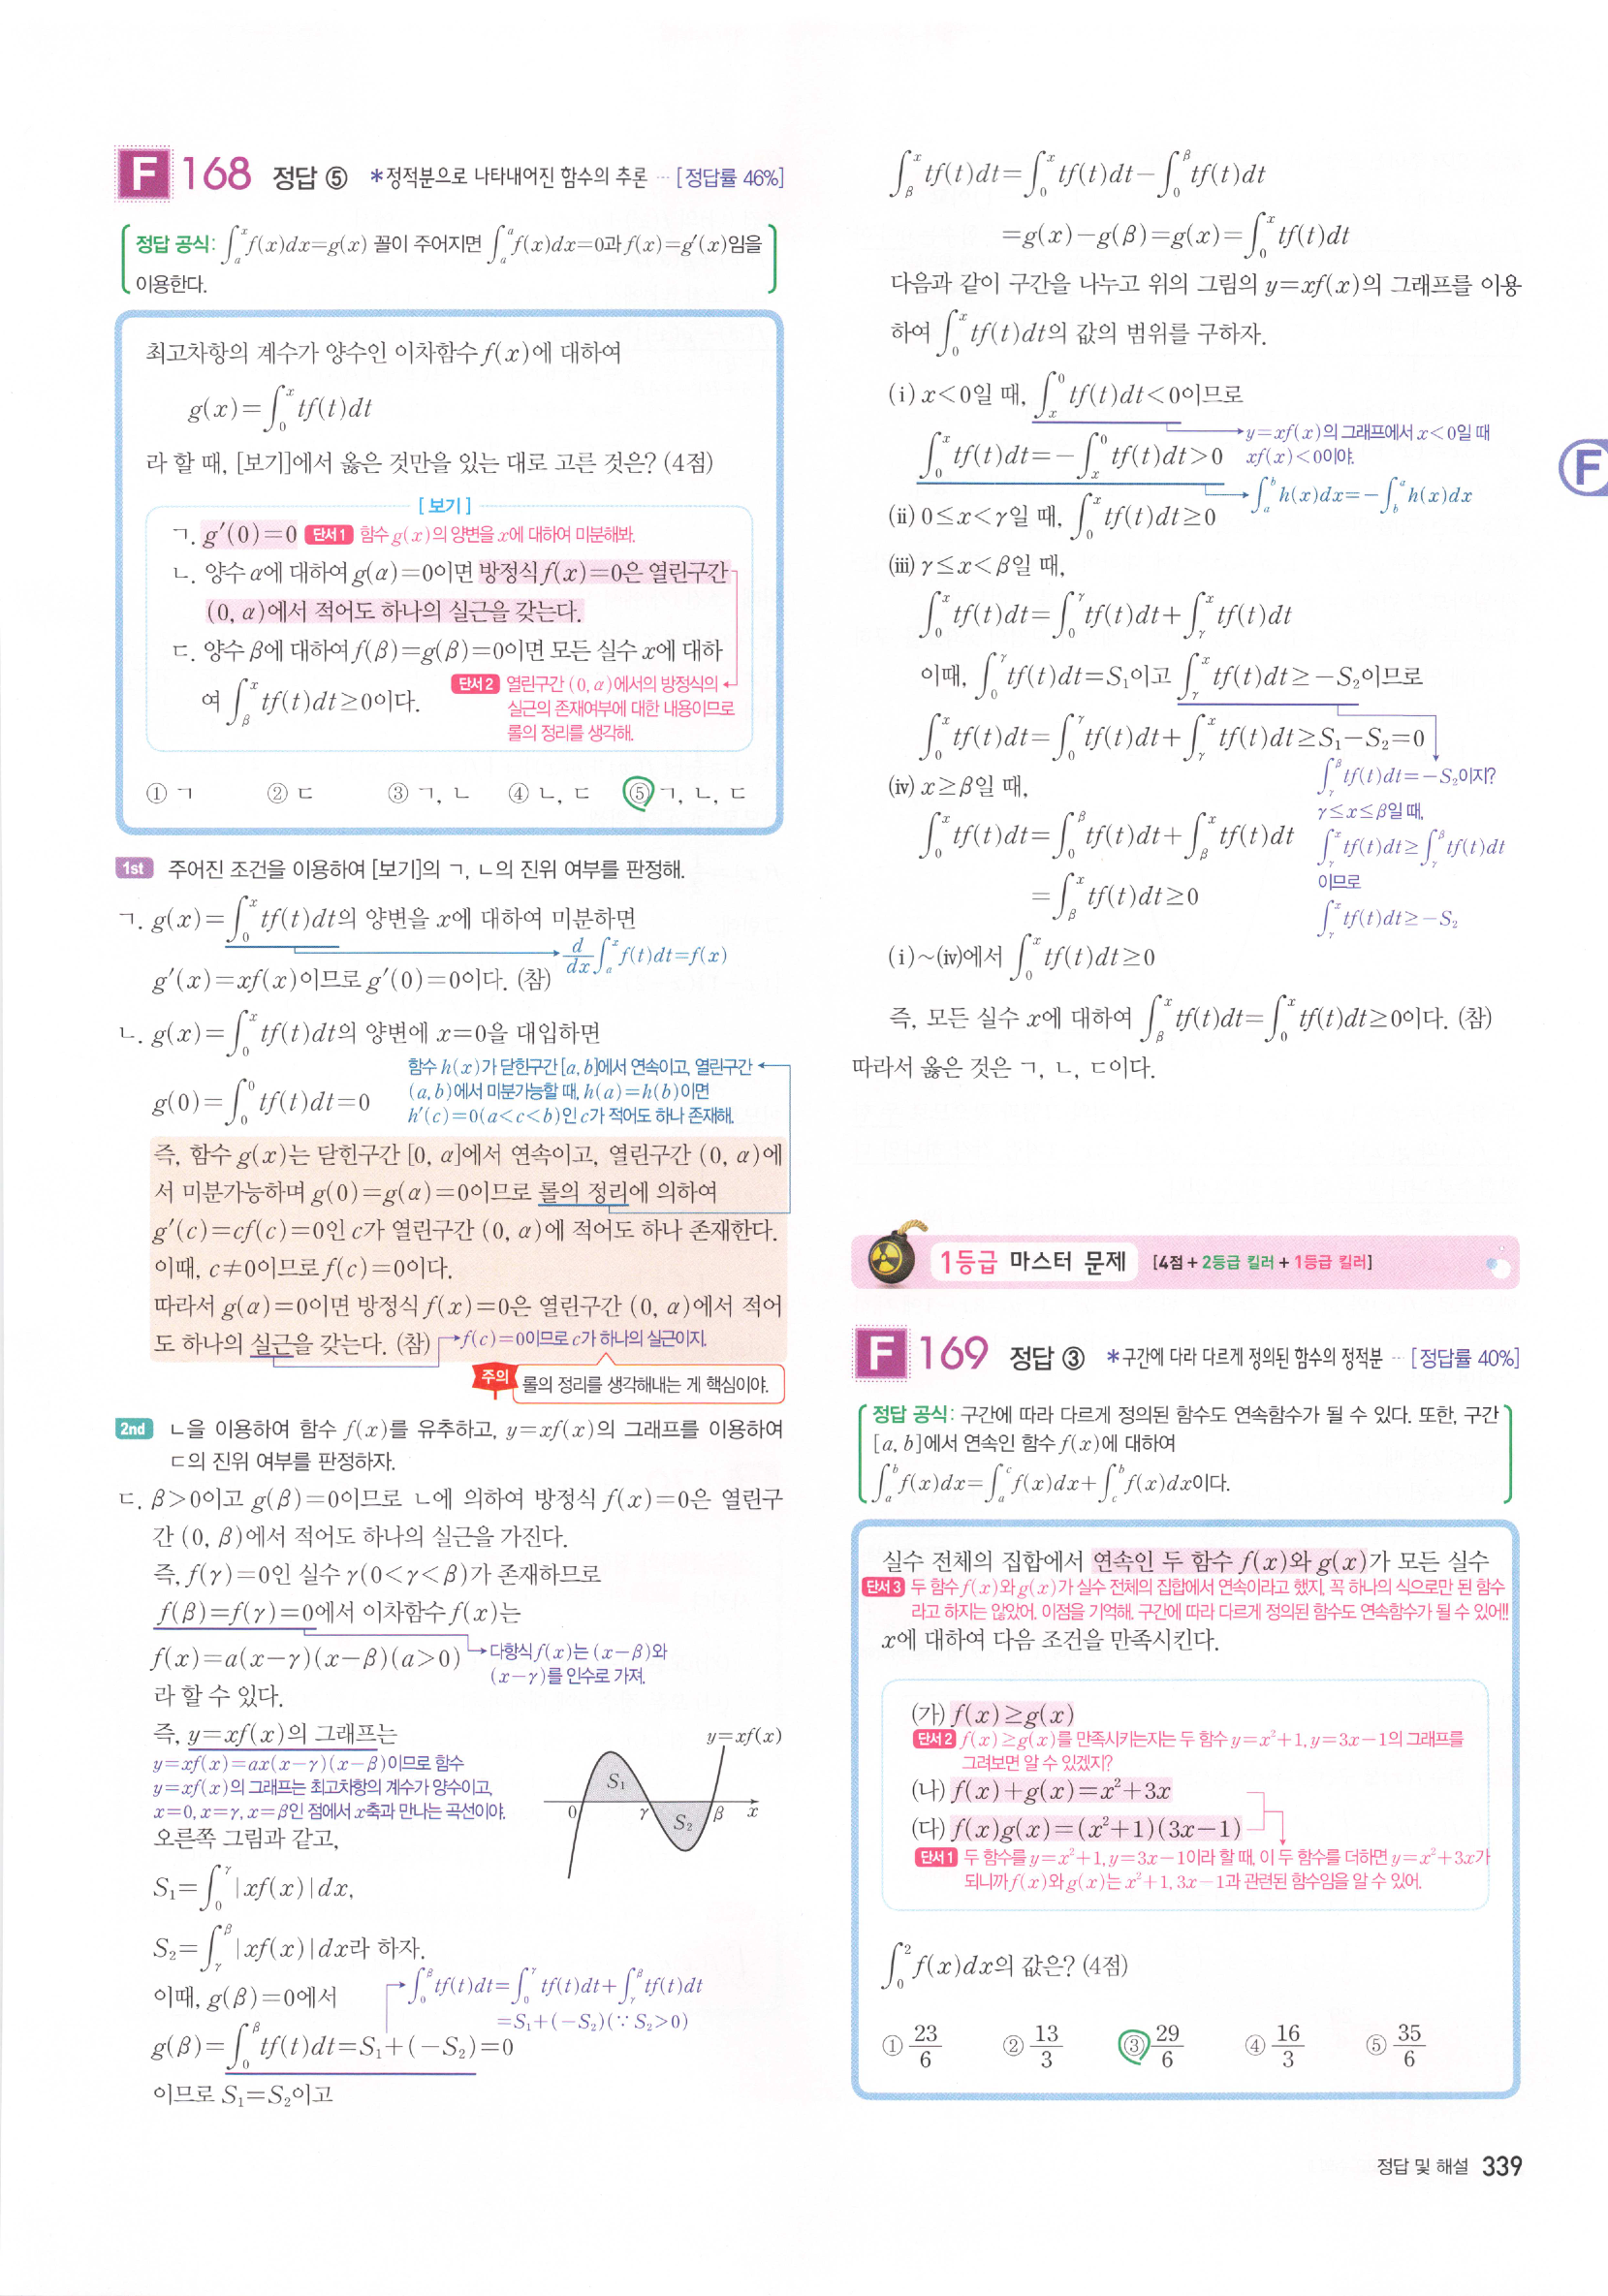 F 168 정답 ⑤ *정적분으로 나타내어진 함수의 추론 ··· [정답률 46%]
정답 공식: ∫ₐˣ f(x)dx=g(x) 꼴이 주어지면 ∫ₐᵃ f(x)dx=0과 f(x)=g′(x)임을
이용한다.
최고차항의 계수가 양수인 이차함수 f(x)에 대하여
g(x)=∫₀ˣ tf(t)dt
라 할 때, [보기]에서 옳은 것만을 있는 대로 고른 것은? (4점)
[보기]
ㄱ. g′(0)=0 단서1 함수 g(x)의 양변을 x에 대하여 미분해봐.
ㄴ. 양수 α에 대하여 g(α)=0이면 방정식 f(x)=0은 열린구간
(0, α)에서 적어도 하나의 실근을 갖는다.
ㄷ. 양수 β에 대하여 f(β)=g(β)=0이면 모든 실수 x에 대하
여 ∫_β^x tf(t)dt≥0이다.
단서2 열린구간 (0, α)에서의 방정식의
실근의 존재여부에 대한 내용이므로
롤의 정리를 생각해.
① ㄱ ② ㄷ ③ ㄱ, ㄴ ④ ㄴ, ㄷ ⑤ ㄱ, ㄴ, ㄷ
1st 주어진 조건을 이용하여 [보기]의 ㄱ, ㄴ의 진위 여부를 판정해.
ㄱ. g(x)=∫₀ˣ tf(t)dt의 양변을 x에 대하여 미분하면
d/dx ∫ₐˣ f(t)dt=f(x)
g′(x)=xf(x)이므로 g′(0)=0이다. (참)
ㄴ. g(x)=∫₀ˣ tf(t)dt의 양변에 x=0을 대입하면
g(0)=∫₀⁰ tf(t)dt=0
함수 h(x)가 닫힌구간 [a, b]에서 연속이고, 열린구간
(a, b)에서 미분가능할 때, h(a)=h(b)이면
h′(c)=0(a<c<b)인 c가 적어도 하나 존재해.
즉, 함수 g(x)는 닫힌구간 [0, α]에서 연속이고, 열린구간 (0, α)에
서 미분가능하며 g(0)=g(α)=0이므로 롤의 정리에 의하여
g′(c)=cf(c)=0인 c가 열린구간 (0, α)에 적어도 하나 존재한다.
이때, c≠0이므로 f(c)=0이다.
따라서 g(α)=0이면 방정식 f(x)=0은 열린구간 (0, α)에서 적어
도 하나의 실근을 갖는다. (참) f(c)=0이므로 c가 하나의 실근이지.
주의 롤의 정리를 생각해내는 게 핵심이야.
2nd ㄴ을 이용하여 함수 f(x)를 유추하고, y=xf(x)의 그래프를 이용하여
ㄷ의 진위 여부를 판정하자.
ㄷ. β>0이고 g(β)=0이므로 ㄴ에 의하여 방정식 f(x)=0은 열린구
간 (0, β)에서 적어도 하나의 실근을 가진다.
즉, f(γ)=0인 실수 γ(0<γ<β)가 존재하므로
f(β)=f(γ)=0에서 이차함수 f(x)는
f(x)=a(x−γ)(x−β)(a>0)
다항식 f(x)는 (x−β)와
(x−γ)를 인수로 가져.
라 할 수 있다.
즉, y=xf(x)의 그래프는
y=xf(x)=ax(x−γ)(x−β)이므로 함수
y=xf(x)의 그래프는 최고차항의 계수가 양수이고,
x=0, x=γ, x=β인 점에서 x축과 만나는 곡선이야.
오른쪽 그림과 같고,
y=xf(x)
S₁
0 γ S₂ β x
S₁=∫₀^γ |xf(x)|dx,
S₂=∫_γ^β |xf(x)|dx라 하자.
이때, g(β)=0에서
∫₀^β tf(t)dt=∫₀^γ tf(t)dt+∫_γ^β tf(t)dt
=S₁+(−S₂)(∵ S₂>0)
g(β)=∫₀^β tf(t)dt=S₁+(−S₂)=0
이므로 S₁=S₂이고
∫_β^x tf(t)dt=∫₀ˣ tf(t)dt−∫₀^β tf(t)dt
=g(x)−g(β)=g(x)=∫₀ˣ tf(t)dt
다음과 같이 구간을 나누고 위의 그림의 y=xf(x)의 그래프를 이용
하여 ∫₀ˣ tf(t)dt의 값의 범위를 구하자.
(ⅰ) x<0일 때, ∫ₓ⁰ tf(t)dt<0이므로
y=xf(x)의 그래프에서 x<0일 때
xf(x)<0이야.
∫₀ˣ tf(t)dt=−∫ₓ⁰ tf(t)dt>0
∫ₐᵇ h(x)dx=−∫_b^a h(x)dx
(ⅱ) 0≤x<γ일 때, ∫₀ˣ tf(t)dt≥0
(ⅲ) γ≤x<β일 때,
∫₀ˣ tf(t)dt=∫₀^γ tf(t)dt+∫_γ^x tf(t)dt
이때, ∫₀^γ tf(t)dt=S₁이고 ∫_γ^x tf(t)dt≥−S₂이므로
∫₀ˣ tf(t)dt=∫₀^γ tf(t)dt+∫_γ^x tf(t)dt≥S₁−S₂=0
∫_γ^β tf(t)dt=−S₂이지?
γ≤x≤β일 때,
∫_γ^x tf(t)dt≥∫_γ^β tf(t)dt
이므로
∫_γ^x tf(t)dt≥−S₂
(ⅳ) x≥β일 때,
∫₀ˣ tf(t)dt=∫₀^β tf(t)dt+∫_β^x tf(t)dt
=∫_β^x tf(t)dt≥0
(ⅰ)~(ⅳ)에서 ∫₀ˣ tf(t)dt≥0
즉, 모든 실수 x에 대하여 ∫_β^x tf(t)dt=∫₀ˣ tf(t)dt≥0이다. (참)
따라서 옳은 것은 ㄱ, ㄴ, ㄷ이다.
F
1등급 마스터 문제 [4점 + 2등급 킬러 + 1등급 킬러]
F 169 정답 ③ *구간에 다라 다르게 정의된 함수의 정적분 ··· [정답률 40%]
정답 공식: 구간에 따라 다르게 정의된 함수도 연속함수가 될 수 있다. 또한, 구간
[a, b]에서 연속인 함수 f(x)에 대하여
∫ₐᵇ f(x)dx=∫ₐᶜ f(x)dx+∫_c^b f(x)dx이다.
실수 전체의 집합에서 연속인 두 함수 f(x)와 g(x)가 모든 실수
단서3 두 함수 f(x)와 g(x)가 실수 전체의 집합에서 연속이라고 했지, 꼭 하나의 식으로만 된 함수
라고 하지는 않았어. 이점을 기억해. 구간에 따라 다르게 정의된 함수도 연속함수가 될 수 있어!!
x에 대하여 다음 조건을 만족시킨다.
(가) f(x)≥g(x)
단서2 f(x)≥g(x)를 만족시키는지는 두 함수 y=x²+1, y=3x−1의 그래프를
그려보면 알 수 있겠지?
(나) f(x)+g(x)=x²+3x
(다) f(x)g(x)=(x²+1)(3x−1)
단서1 두 함수를 y=x²+1, y=3x−1이라 할 때, 이 두 함수를 더하면 y=x²+3x가
되니까 f(x)와 g(x)는 x²+1, 3x−1과 관련된 함수임을 알 수 있어.
∫₀² f(x)dx의 값은? (4점)
① 23/6 ② 13/3 ③ 29/6 ④ 16/3 ⑤ 35/6
정답 및 해설 339